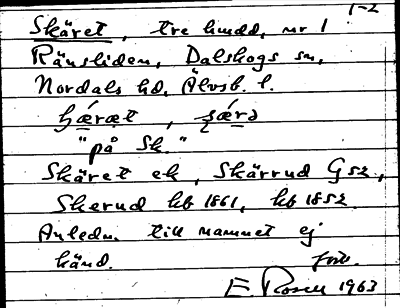 1-2
Skäret, tre hmdd, nr 1
Ränsliden, Dalskogs sn,
Nordals hd, Älvsb. l.
"på Sk."
Skäret ek, Skärrud G52,
Skerud hb 1861, hb 1852
Anledn. till namnet ej
känd. förr.
E. Rosell 1963